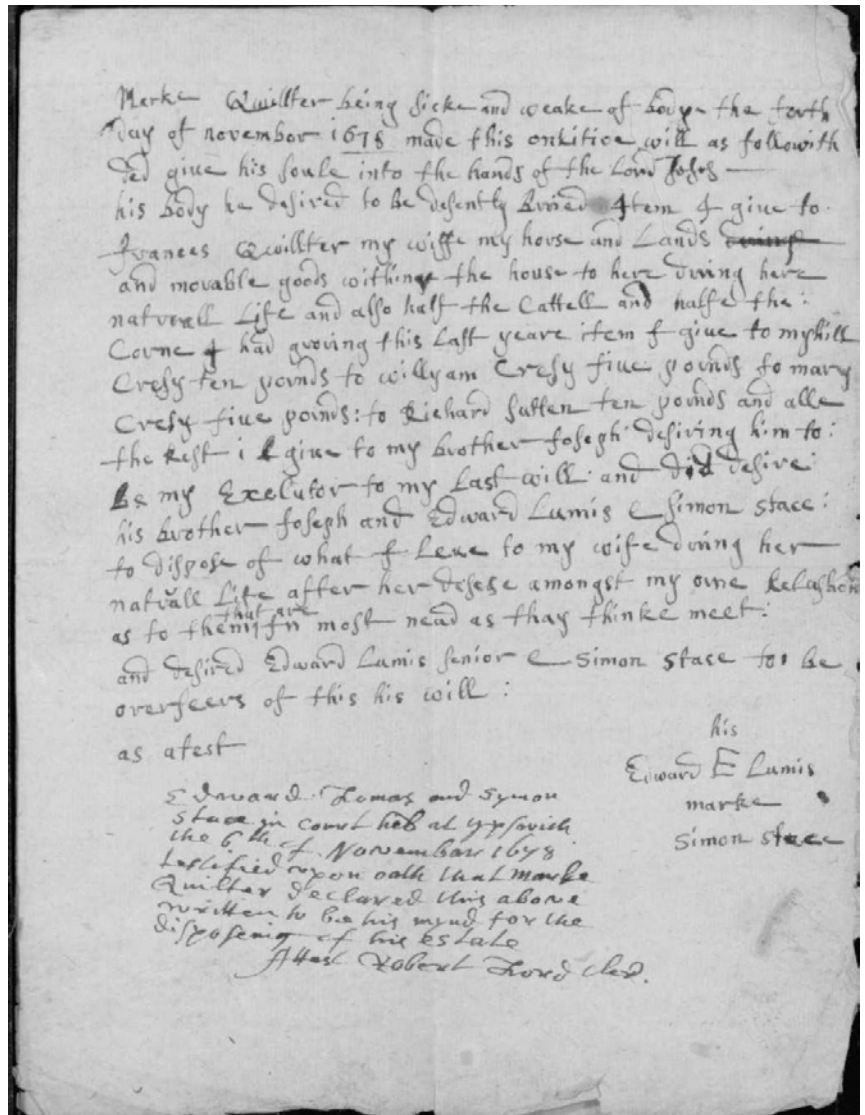 Marke Quillter being sicke and weake of body the forth
day of november 1678 made this onkitice will as followith
ded giue his soule into the hands of the Lord Jesos
his body he desired to be desently buried Item I giue to
frances Quillter my wiffe my horse and Lands
and movable goods within the house to here during here
natvrall Life and also half the Cattell and halfe the :
Corne I had groving this Last yeare item I giue to
Cresy ten pounds to willyam Cresy fiue pounds to mary
Cresy fiue pounds : to Richard sutten ten pounds and alle
the Rest i giue to my brother Joseph desiring him to :
be my Execkutor to my Last will and did desire :
his brother Joseph and Edward Lumis & Simon stace :
to dispose of what I Leue to my wife during her
natvrall Life after her desese amongst my owne Relashon
as to them that are in most nead as thay thinke meet :
and desired Edward Lumis senior & Simon stace to be
overseers of this his will :
as atest
his
Edward E Lumis
marke
Simon stace
Edward Lomas and Symon
Stace in court held at Ypswich
the 6th of November 1678
testified vpon oath that marke
Quilter declared this above
written to be his mynd for the
disposeing of his estate
Attest Robert Lord cler.